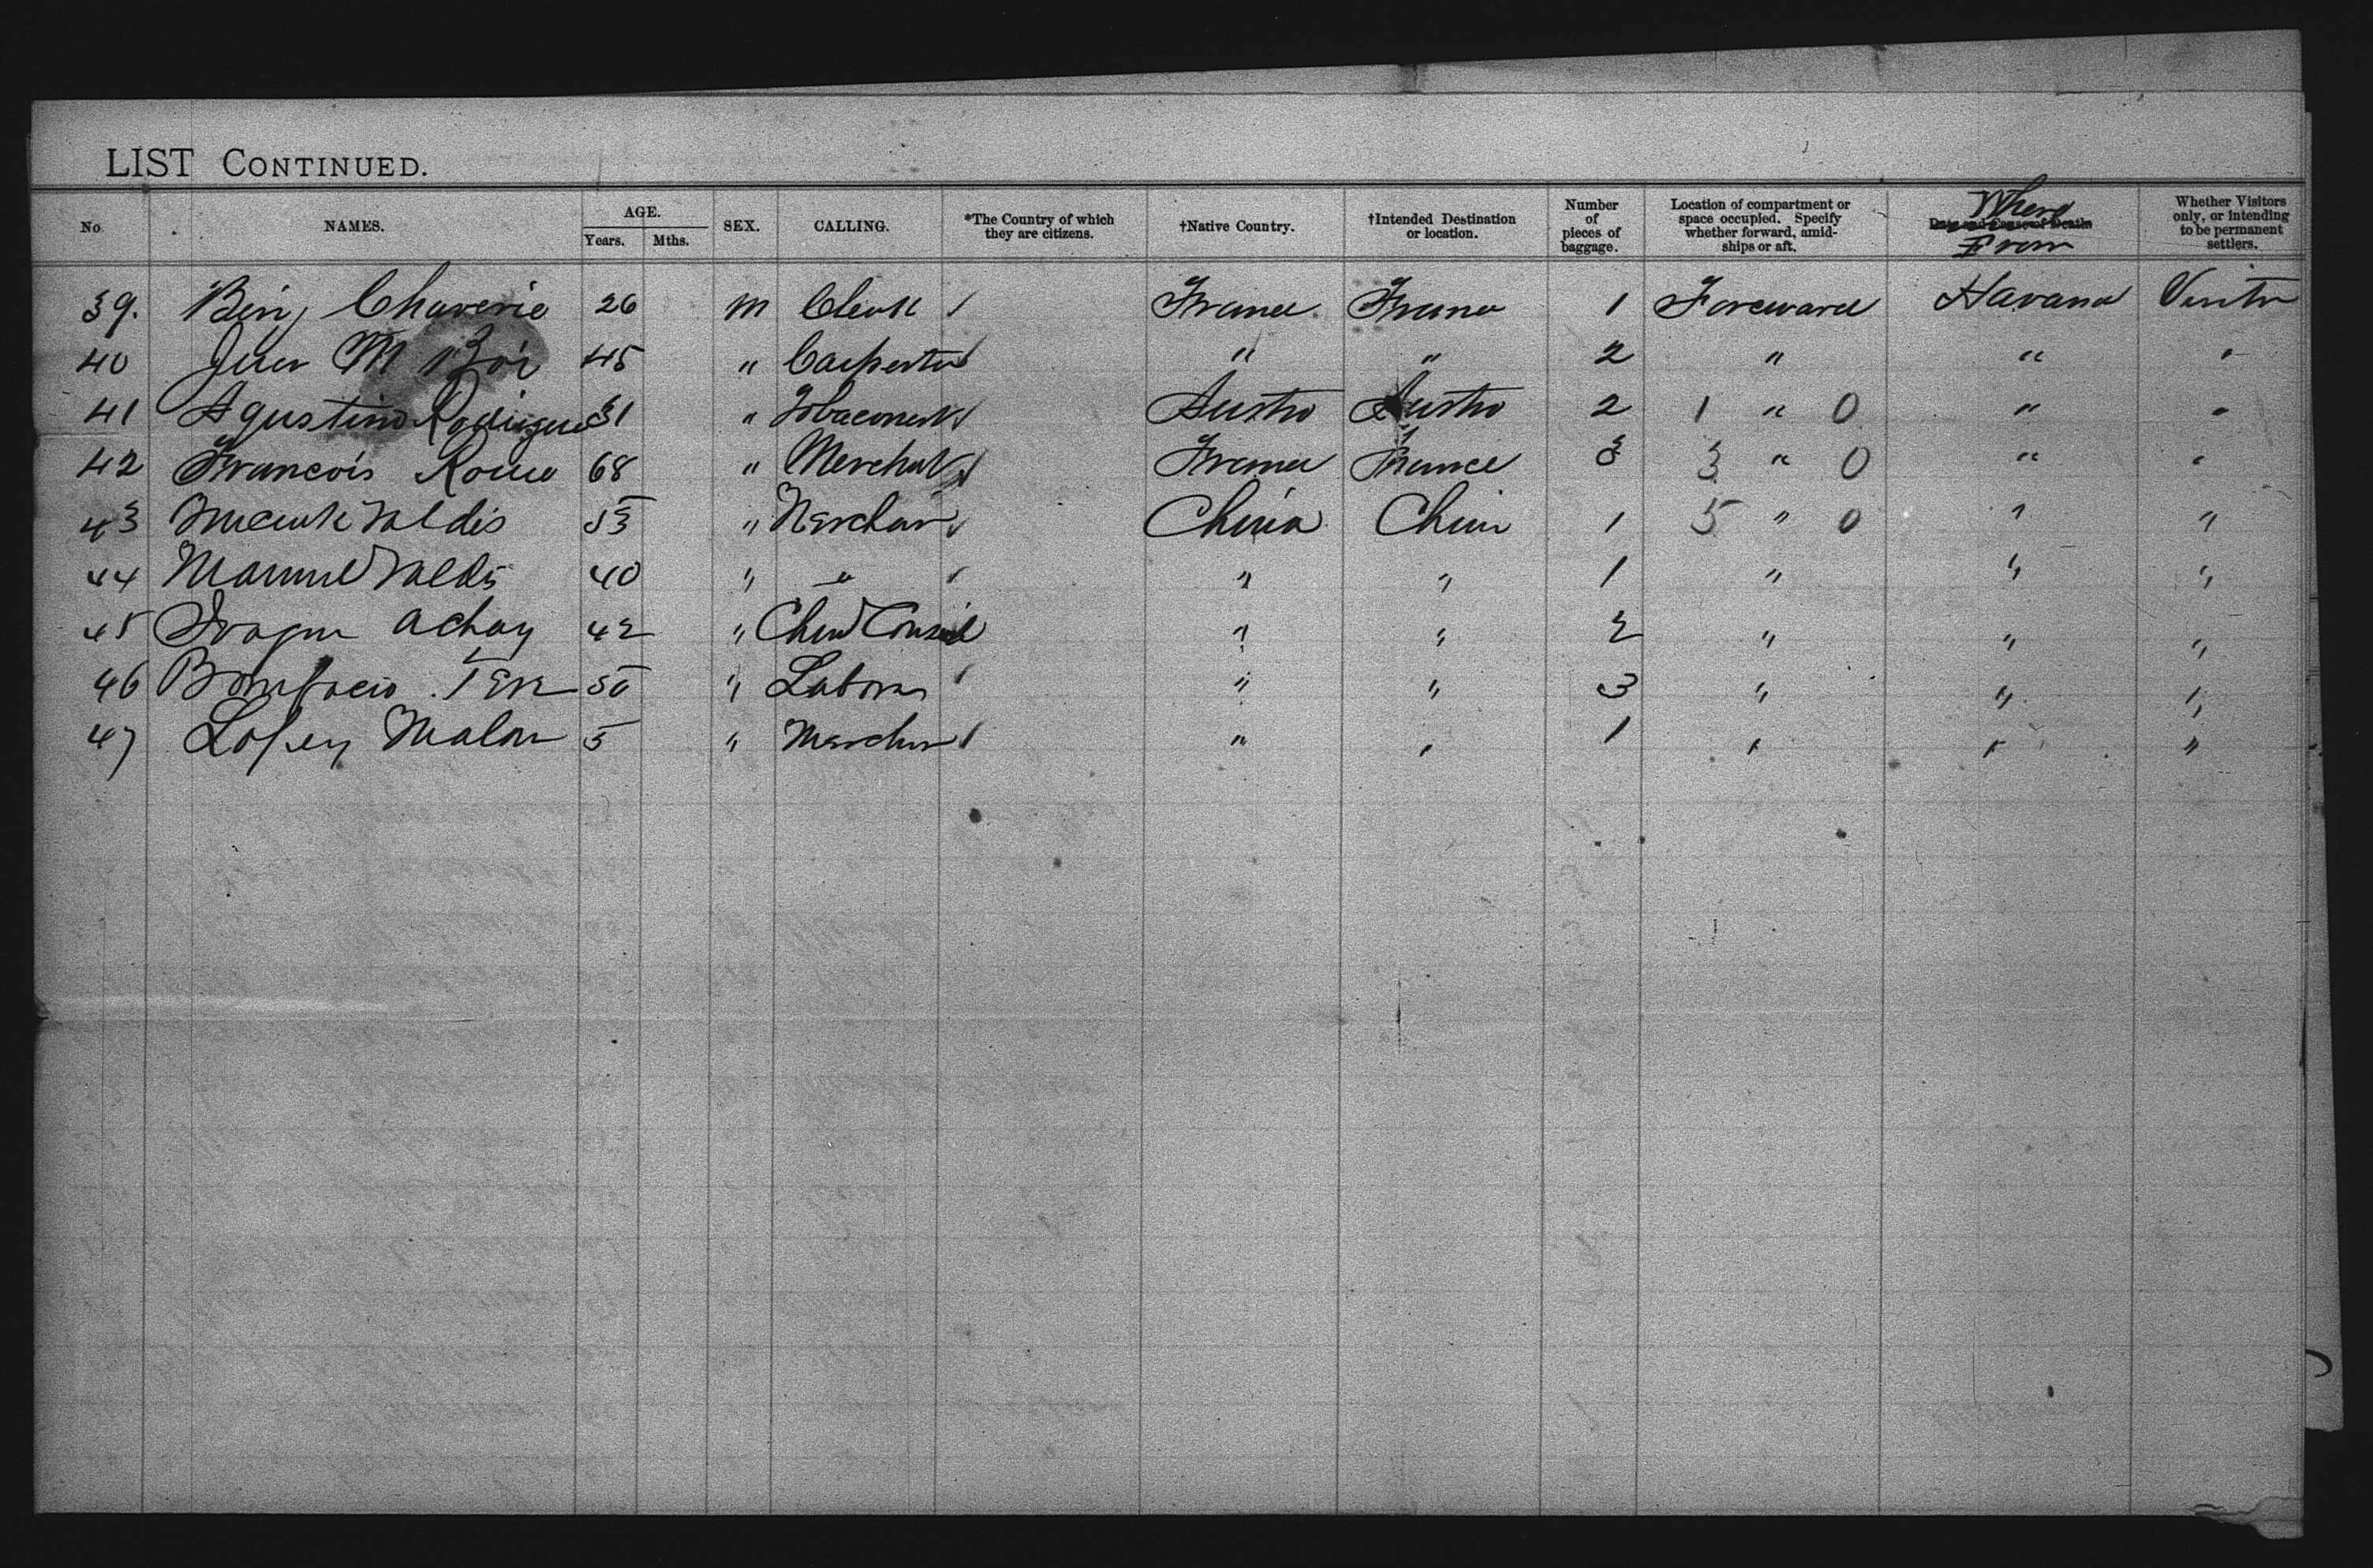 LIST CONTINUED.
No. NAMES. AGE. Years. Mths. SEX. CALLING. *The Country of which they are citizens. †Native Country. †Intended Destination or location. Number of pieces of baggage. Location of compartment or space occupied. Specify whether forward, amidships or aft. Date and Cause of Death Where From Whether Visitors only, or intending to be permanent settlers.
39. Binj Chaverie 26 M Clerk / France France 1 Foreward Havana Visitor
40 45 " Carpenter / " " 2 " " "
41 Agustino Rodrigue 31 " Tobaconist / Austro Austro 2 1 " 0 " "
42 Francois 68 " Merchat / France France 3 3 " 0 " "
43 Valdis 53 " Merchan / China Chin 1 5 " 0 " "
44 Manuel Valdis 40 " " / " " 1 " " "
45 Achay 42 " Consul " " 2 " " "
46 Bonifacio 50 " Labora / " " 3 " " "
47 Lopez Malon 5 " Merchan / " " 1 " " "